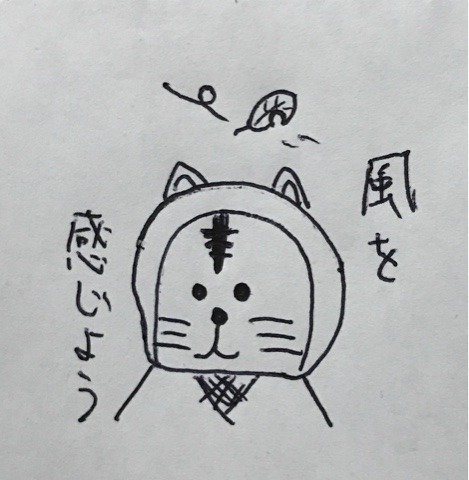 風を
感じよう